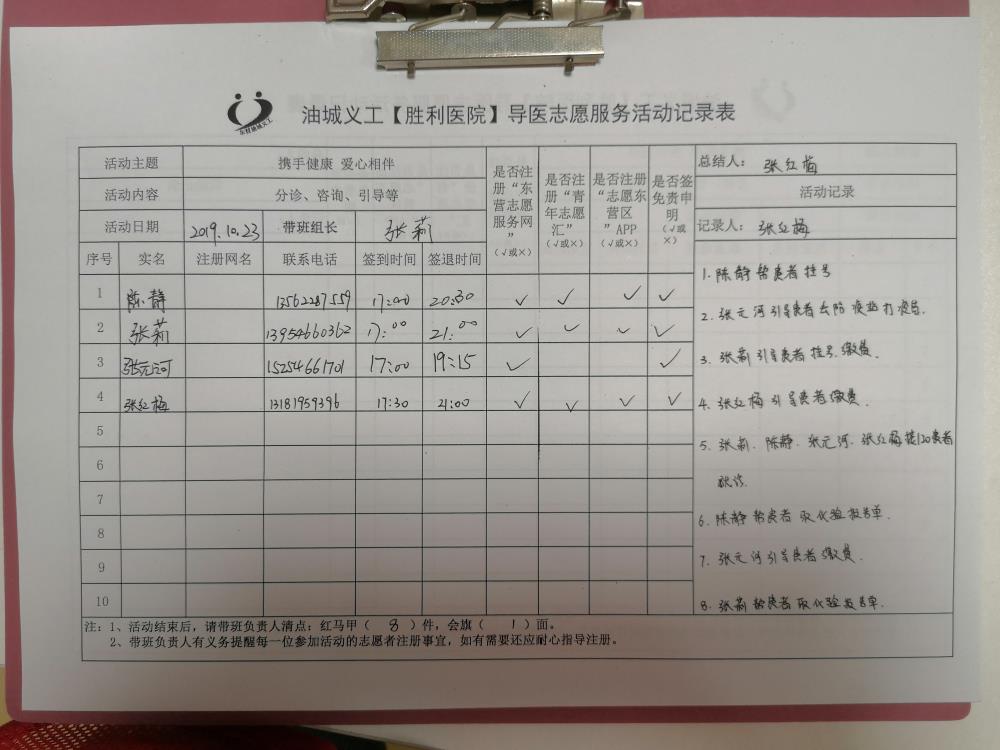 东营油城义工
油城义工【胜利医院】导医志愿服务活动记录表
活动主题 携手健康 爱心相伴
活动内容 分诊、咨询、引导等
活动日期 2019.10.23 带班组长 张莉
序号 实名 注册网名 联系电话 签到时间 签退时间
是否注册“东营志愿服务网”（√或×）
是否注册“青年志愿汇”（√或×）
是否注册“志愿东营区”APP（√或×）
是否签免责申明（√或×）
1 陈静 13562287559 17:00 20:30 √ √ √ √
2 张莉 13954660362 17:00 21:00 √ √ √ √
3 张元河 15254661701 17:00 19:15 √ √
4 张红梅 13181959396 17:30 21:00 √ √ √ √
5
6
7
8
9
10
总结人： 张红梅
活动记录
记录人： 张红梅
1. 陈静帮患者挂号
2. 张元河引导患者去防疫站打疫苗.
3. 张莉引导患者挂号.缴费.
4. 张红梅引导患者缴费.
5. 张莉.陈静.张元河.张红梅接120患者
就诊.
6. 陈静帮患者取化验报告单.
7. 张元河引导患者缴费.
8. 张莉帮患者取化验报告单.
注：1、活动结束后，请带班负责人清点：红马甲（ 8 ）件，会旗（ 1 ）面。
2、带班负责人有义务提醒每一位参加活动的志愿者注册事宜，如有需要还应耐心指导注册。